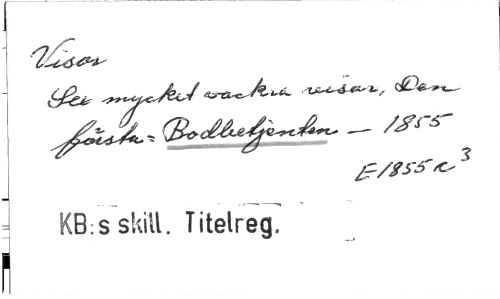 Visor
Sex mycket vackra visor, Den
första = Bodbetjenten — 1855
E1855 c³
KB:s skill. Titelreg.